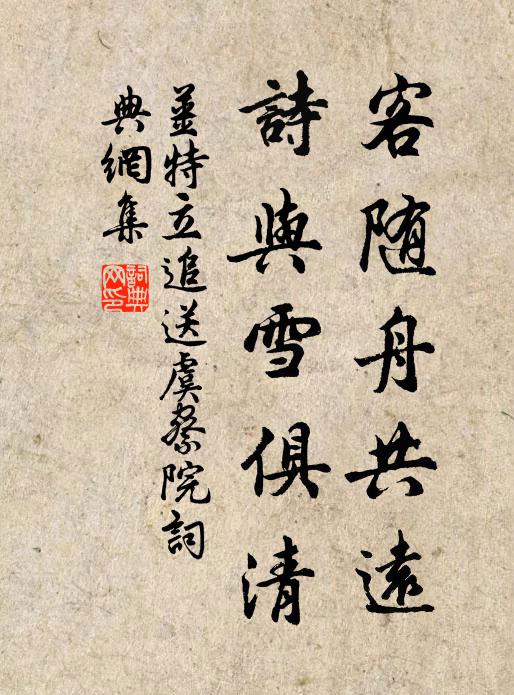 客随舟共遠
詩與雪俱清
姜特立追送虞察院詞
典網集
詞典網印